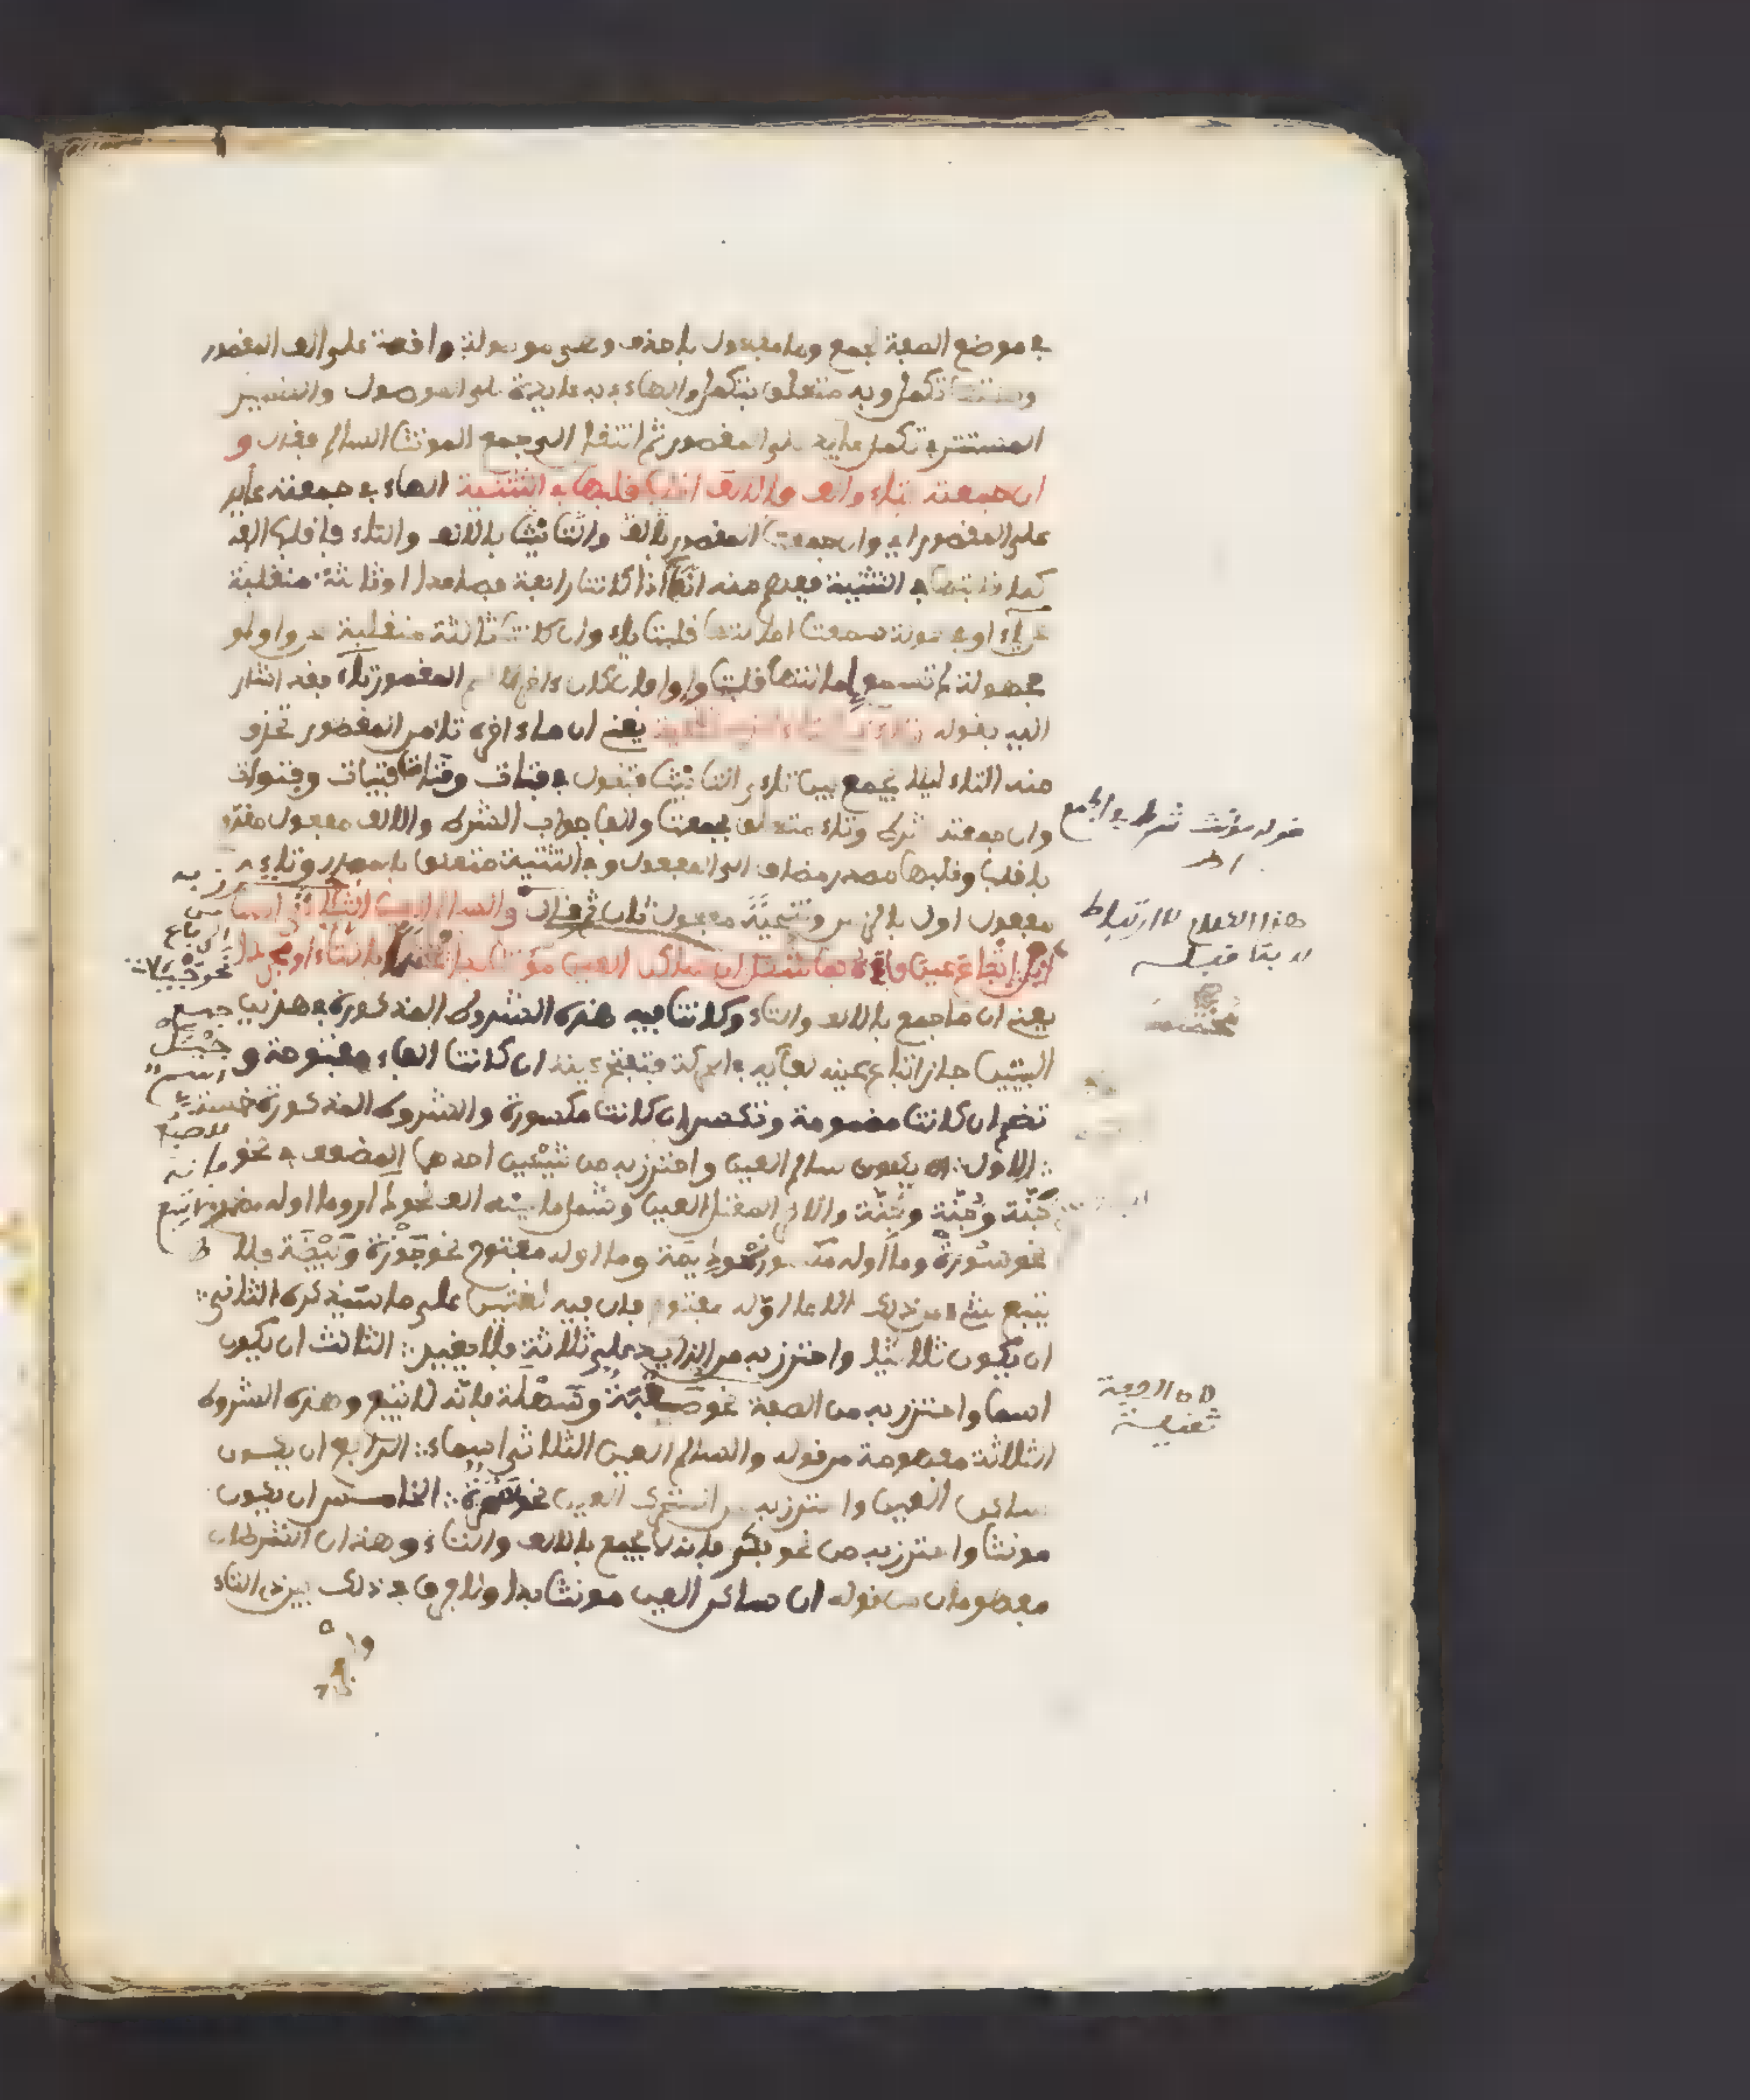 في موضع الصفة لجمع وما مفعول باحذف وهي موصولة واقعة على الف المقصور
وصلتها تكملا وبه متعلق بتكملا والهاء في به عايدة على الموصول والضمير
المستتر في تكملا عايد على المقصور ثم انتقل الى جمع المونث السالم فقال و
ان جمعته بتاء والف فالالف اقلب قلبها في التثنية الهاء في جمعته عايد
على المقصور اي وان جمعت المقصور بالف والتانيث بالالف والتاء فاقلب الفه
كما قلبتها في التثنية ففهم منه انها اذا كانت رابعة فصاعدا او ثالثة منقلبة
عن ياء او مجهولة سمعت امالتها قلبت ياء وان كانت ثالثة منقلبة عن واو او
مجهولة لم تسمع امالتها قلبت واوا فان كان داخر الاسم المقصور تاء فقد اشار
اليه بقوله وتاء ذي التا الزمن تنحية يعني ان ما ءاخره تاء من المقصور تحذف
منه التاء ليلا يجمع بين تاءي التانيث فتقول في فتاة وقناة فتيات وقنوات
وان جمعته شرط وتاء متعلق بجمعت والفا جواب الشرط والالف مفعول مقدم
باقلب وقلبها مصدر مضاف الى المفعول وفي التثنية متعلق بالمصدر وتاء ذي
مفعول اول بالزمن وتنحية مفعول ثان ثم قال والسالم العين الثلاثي اسما
انل اتباع عين فاءه بما شكل ان ساكن العين مونثا بدا مختتما بالتاء او مجردا
يعني ان ما جمع بالالف والتاء وكانت فيه هذه الشروط المذكورة في هذين
البيتين جاز اتباع عينه لفايه في الحركة فتفتح عينه ان كانت الفاء مفتوحة و
تضم ان كانت مضمومة وتكسر ان كانت مكسورة والشروط المذكورة خمسة
الاول ان يكون سالم العين واحترز به من شيئين احدهما المضعف في نحو
جنة وجنة وجنة والاخر المعتل العين وشمل ما عينه الف نحو دار وما اوله مضموم
نحو سورة وما اوله مكسور نحو ديمة وما اوله مفتوح نحو جوزة وبيضة فلا
يتبع شيء من ذلك الا ما اوله مفتوح فان فيه لغتين على ما سيذكره الثاني
ان يكون ثلاثيا واحترز به من الزايد على ثلاثة فلا يغير الثالث ان يكون
اسما واحترز به من الصفة نحو صعبة وسهلة فانه لا يتبع وهذه الشروط
الثلاثة مفهومة من قوله والسالم العين الثلاثي اسما الرابع ان يكون
ساكن العين واحترز به من المتحرك العين نحو شجرة الخامس ان يكون
مونثا واحترز به من نحو بكر فانه لا يجمع بالالف والتاء وهذان الشرطان
مفهومان من قوله ان ساكن العين مونثا بدا ولا فرق في ذلك بين ذي التاء
قوله مؤنث شرط في الجمع
هذا الكلام لا ارتباط
له بما قبله